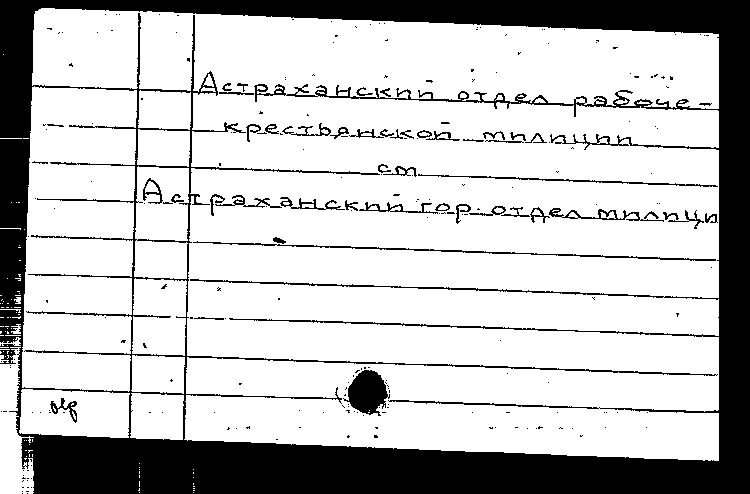 Астраханский отдел рабоче-
крестьянской милиции
см
Астраханский гор. отдел милици